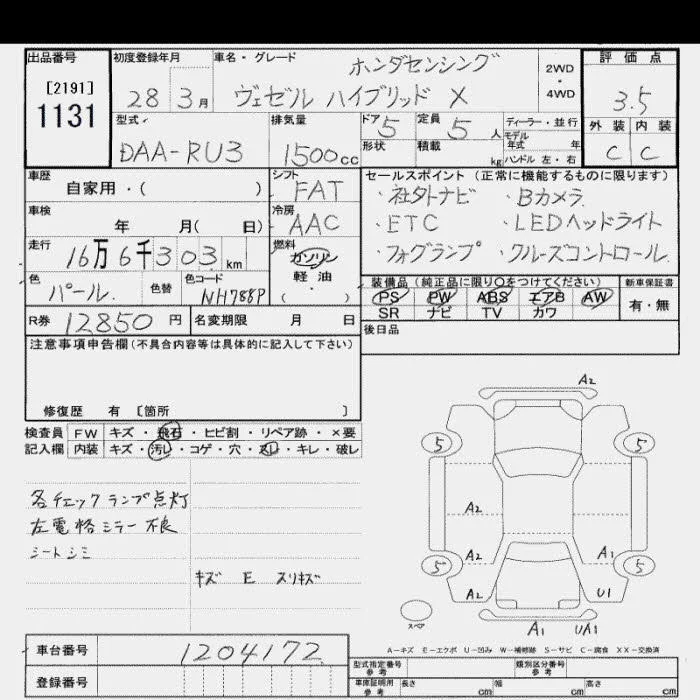 出品番号 初度登録年月 車名・グレード ホンダセンシング 2WD・4WD 評価点
[2191] 28 3月 ヴェゼル ハイブリッド X 3.5
1131
型式 排気量 ドア 5 定員 5 人 ディーラー・並行 外装 内装
DAA-RU3 1500cc 形状 積載 kg モデル年式 年 C C
ハンドル 左・右
車歴 シフト セールスポイント (正常に機能するものに限ります)
自家用・( ) FAT ・社外ナビ ・Bカメラ
車検 冷房 ・ETC ・LEDヘッドライト
年 月( 日) AAC ・フォグランプ ・クルーズコントロール
走行 16万6千303km 燃料 ガソリン・軽・油 ( )
色 パール. 色替 色コード NH788P
装備品 (純正品に限り○をつけてください) 新車保証書
PS PW ABS エアB AW 有・無
SR ナビ TV カワ
R券 12850円 名変期限 月 日 後日品
注意事項申告欄(不具合内容等は具体的に記入して下さい)
修復歴 有 〔箇所 〕
検査員 FW キズ・飛石・ヒビ割・リペア跡・×要
記入欄 内装 キズ・汚レ・コゲ・穴・スレ・キレ・破レ
各チェックランプ点灯
左電格ミラー不良
シートシミ
キズ E スリキズ
A2
5 5
A2
A2 A1
5 5
A2 U1
スペア A1 UA1
A-キズ E-エクボ U-凹み W-補修跡 S-サビ C-腐食 XX-交換済
車台番号 1204172
型式指定番号 参考 類別区分番号 参考
登録番号 車庫証明用 参考 長さ cm 幅 cm 高さ cm